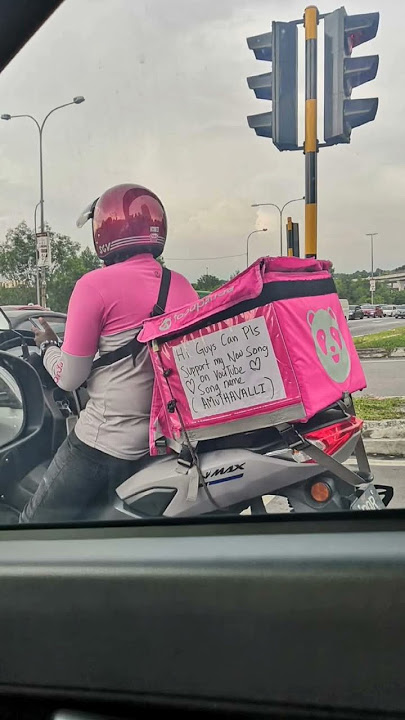 SGV
foodpanda
Hi Guys Can Pls
Support my New Song
♡ on YouTube ♡
♡ Song name
(AMUTHAVALLI)
MAX